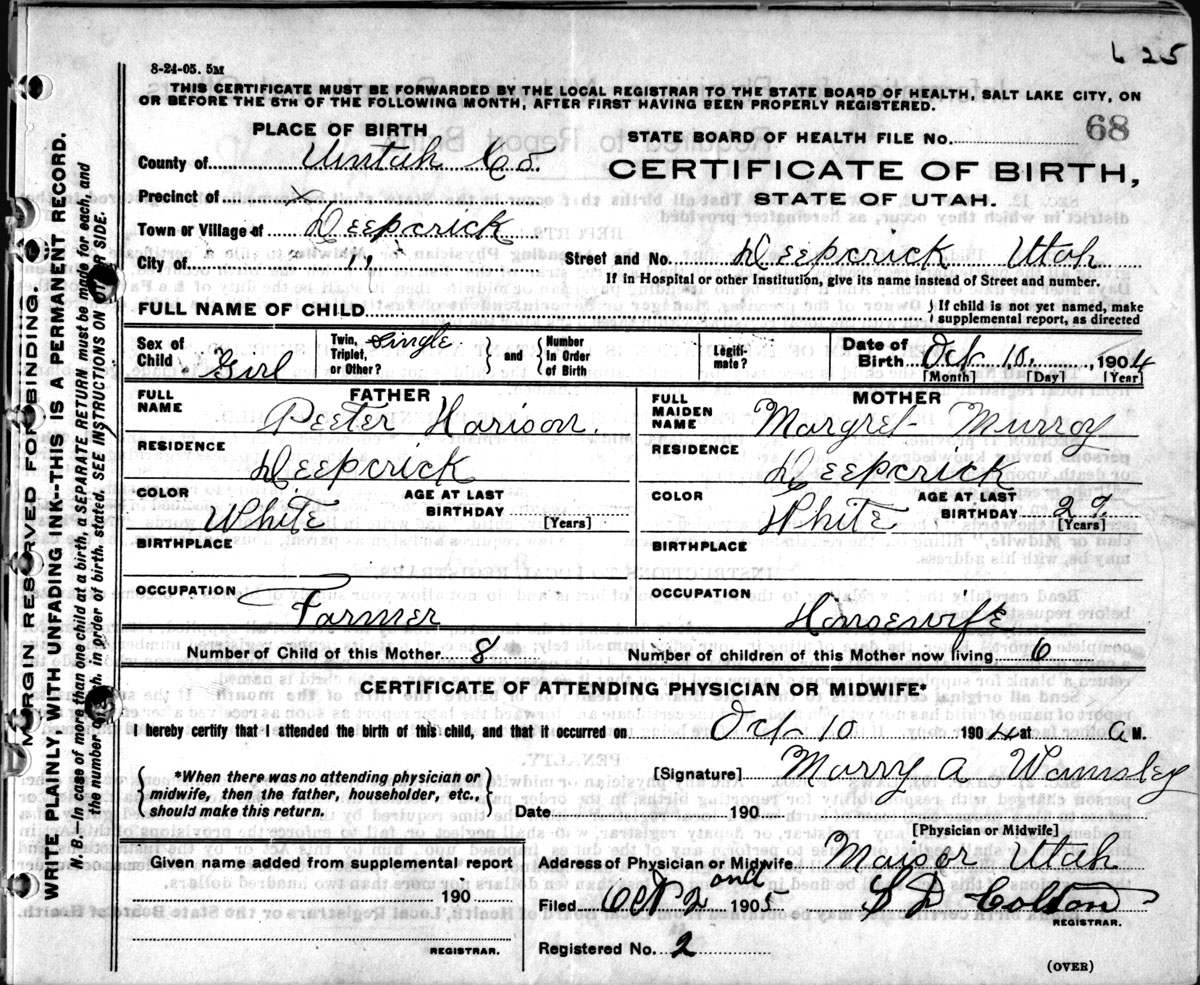 6 25
8-24-05. 5M
THIS CERTIFICATE MUST BE FORWARDED BY THE LOCAL REGISTRAR TO THE STATE BOARD OF HEALTH, SALT LAKE CITY, ON
OR BEFORE THE 5TH OF THE FOLLOWING MONTH, AFTER FIRST HAVING BEEN PROPERLY REGISTERED.
PLACE OF BIRTH
STATE BOARD OF HEALTH FILE No. 68
County of Uintah Co.
CERTIFICATE OF BIRTH,
Precinct of
STATE OF UTAH.
Town or Village of Deepcrick
City of " "
Street and No. Deepcrick Utah
If in Hospital or other Institution, give its name instead of Street and number.
FULL NAME OF CHILD
{ If child is not yet named, make
supplemental report, as directed
Sex of Child Girl
Twin, Triplet, or Other? Single
and { Number In Order of Birth
Legitimate?
Date of Birth Oct 10, 1904
[Month] [Day] [Year]
FATHER
FULL NAME Peeter Harison.
MOTHER
FULL MAIDEN NAME Margret Murroy
RESIDENCE Deepcrick
RESIDENCE Deepcrick
COLOR White
AGE AT LAST BIRTHDAY [Years]
COLOR White
AGE AT LAST BIRTHDAY [Years]
BIRTHPLACE
BIRTHPLACE
OCCUPATION Farmer
OCCUPATION Housewife
Number of Child of this Mother 8
Number of children of this Mother now living 6
CERTIFICATE OF ATTENDING PHYSICIAN OR MIDWIFE*
I hereby certify that I attended the birth of this child, and that it occurred on Oct 10 1904 at a M.
{ *When there was no attending physician or
midwife, then the father, householder, etc.,
should make this return. }
[Signature] Marry A Wamsley
Date 190
[Physician or Midwife]
Given name added from supplemental report
190
REGISTRAR.
Address of Physician or Midwife Maiser Utah
Filed Oct 2nd 1905 S D Colton
REGISTRAR.
Registered No. 2
(OVER)
MARGIN RESERVED FOR BINDING
WRITE PLAINLY WITH UNFADING INK--THIS IS A PERMANENT RECORD.
N. B.--In case of more than one child at a birth, a SEPARATE RETURN must be made for each, and
the number of each, in order of birth, stated. SEE INSTRUCTIONS ON OTHER SIDE.